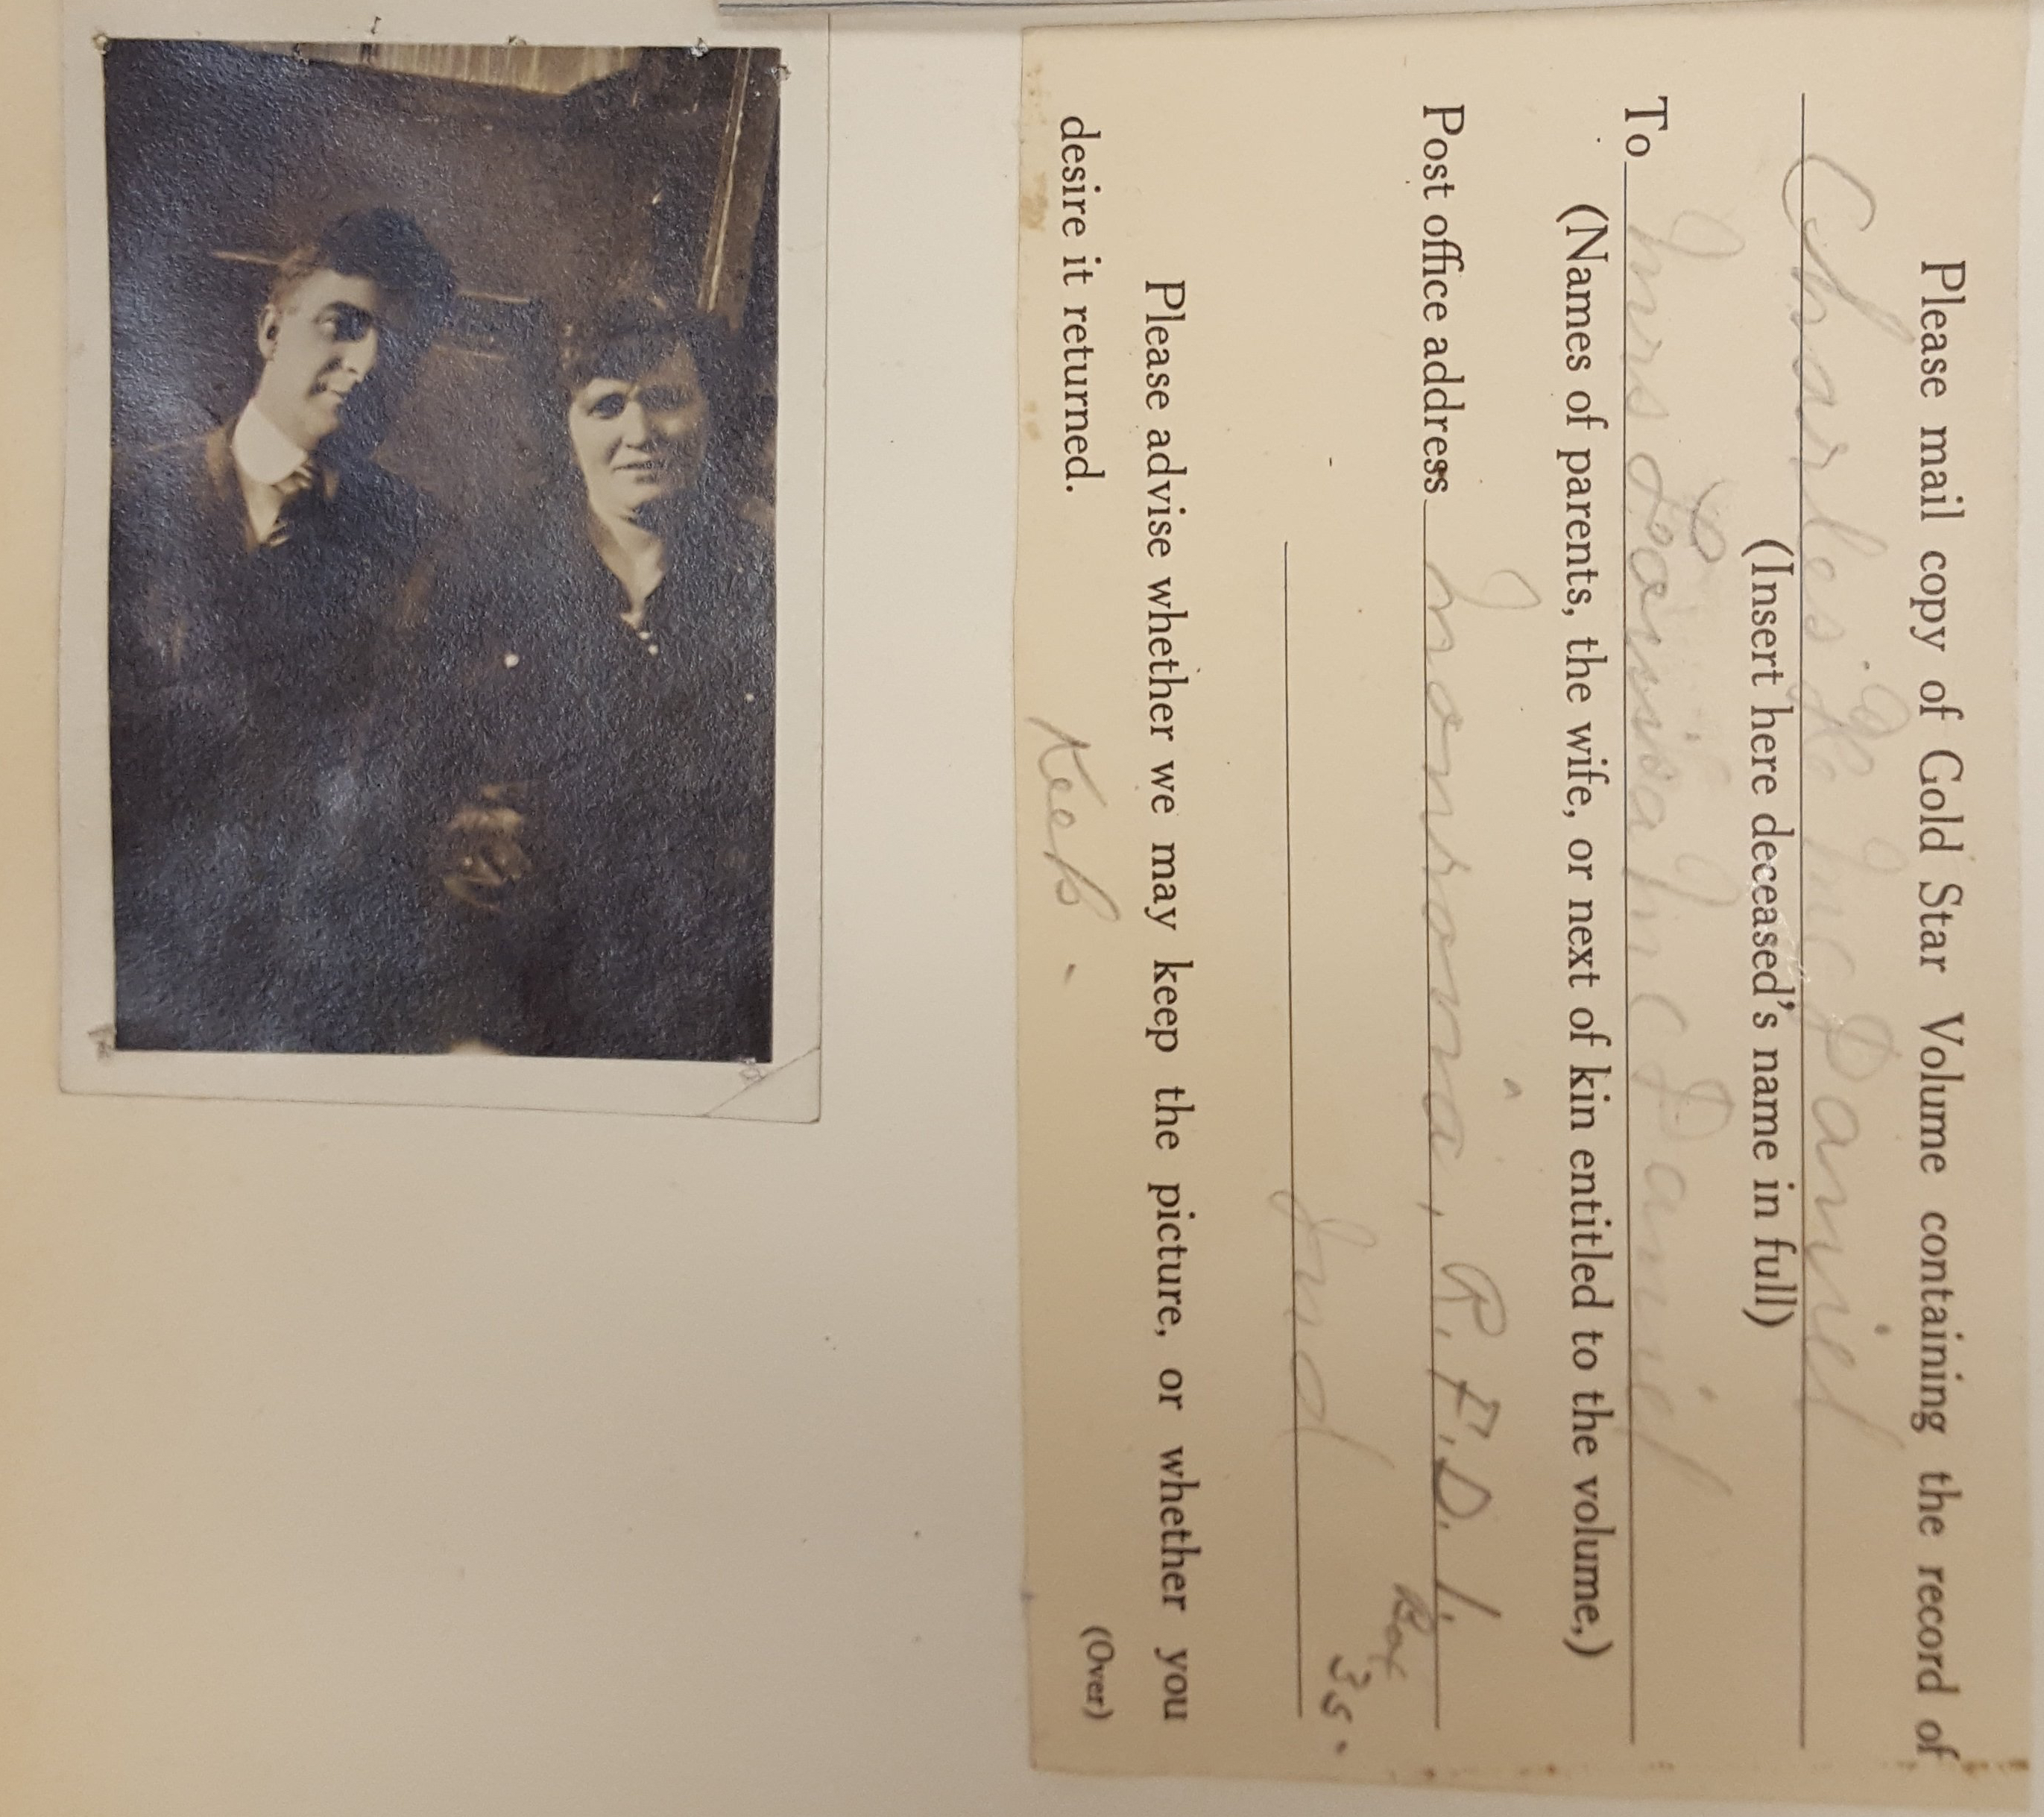 Please mail copy of Gold Star Volume containing the record of
Charles McDaniel
(Insert here deceased's name in full)
To Mrs Louisa McDaniel
(Names of parents, the wife, or next of kin entitled to the volume,)
Post office address Monrovia, R.F.D. 1.
Box 35.
Ind
Please advise whether we may keep the picture, or whether you
desire it returned. Keep.
(Over)